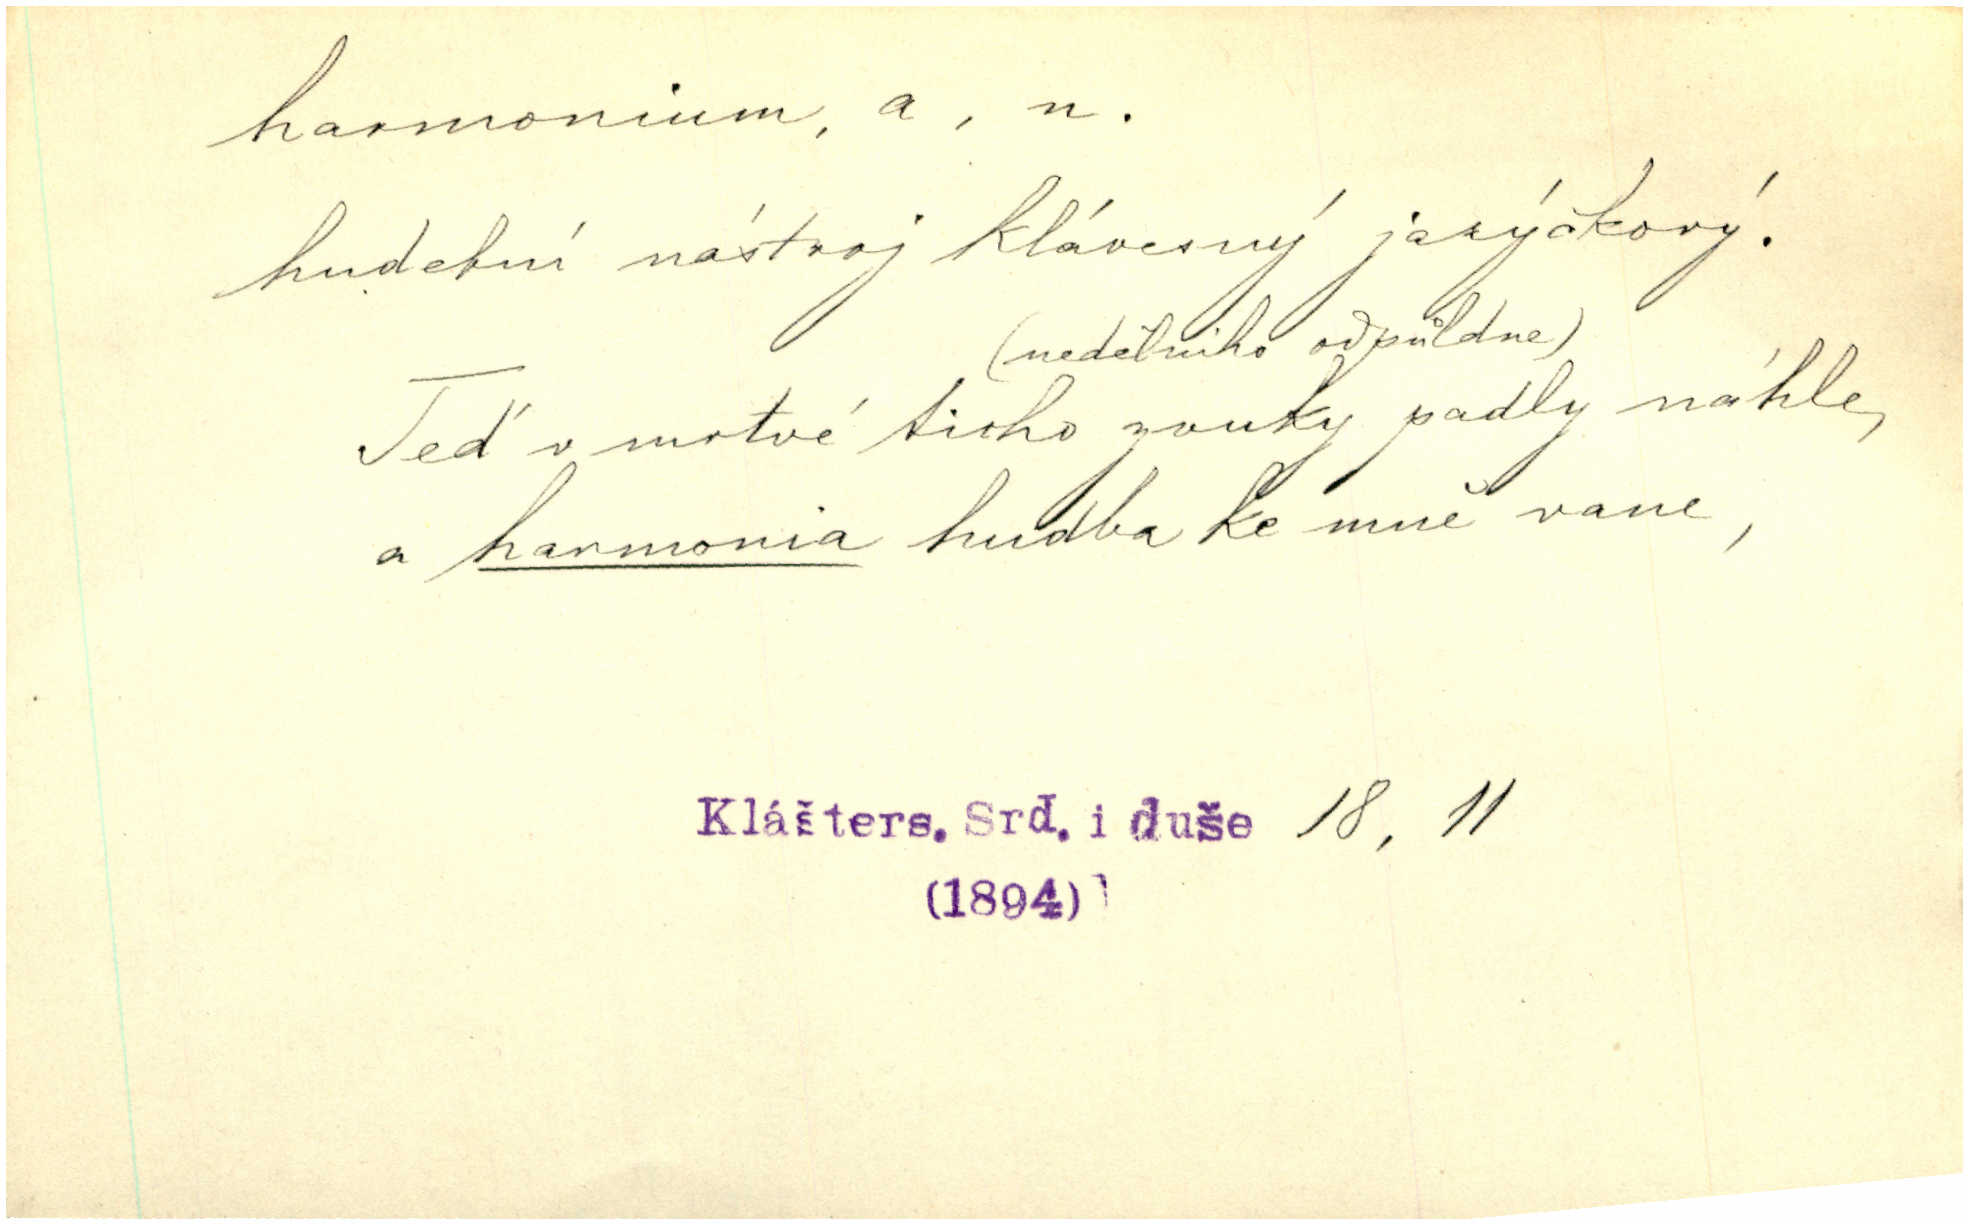 harmonium, a, n.
hudební nástroj klávesný jazýčkový.
(nedělního odpůldne)
Teď v mrtvé ticho zvuky padly náhle,
a harmonia hudba ke mně vane,
Klášters. Srd. i duše 18, 11
(1894)